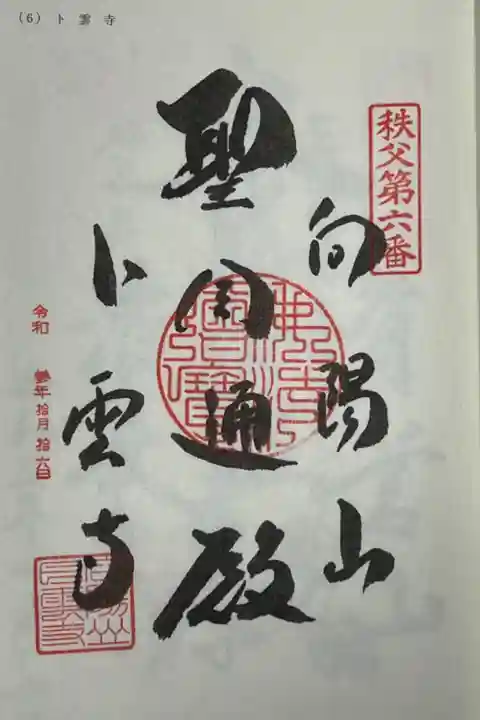 (6) 卜雲寺
秩父第六番
向陽山
聖圓通殿
佛法僧寶
卜雲寺
令和 參年拾月拾六日